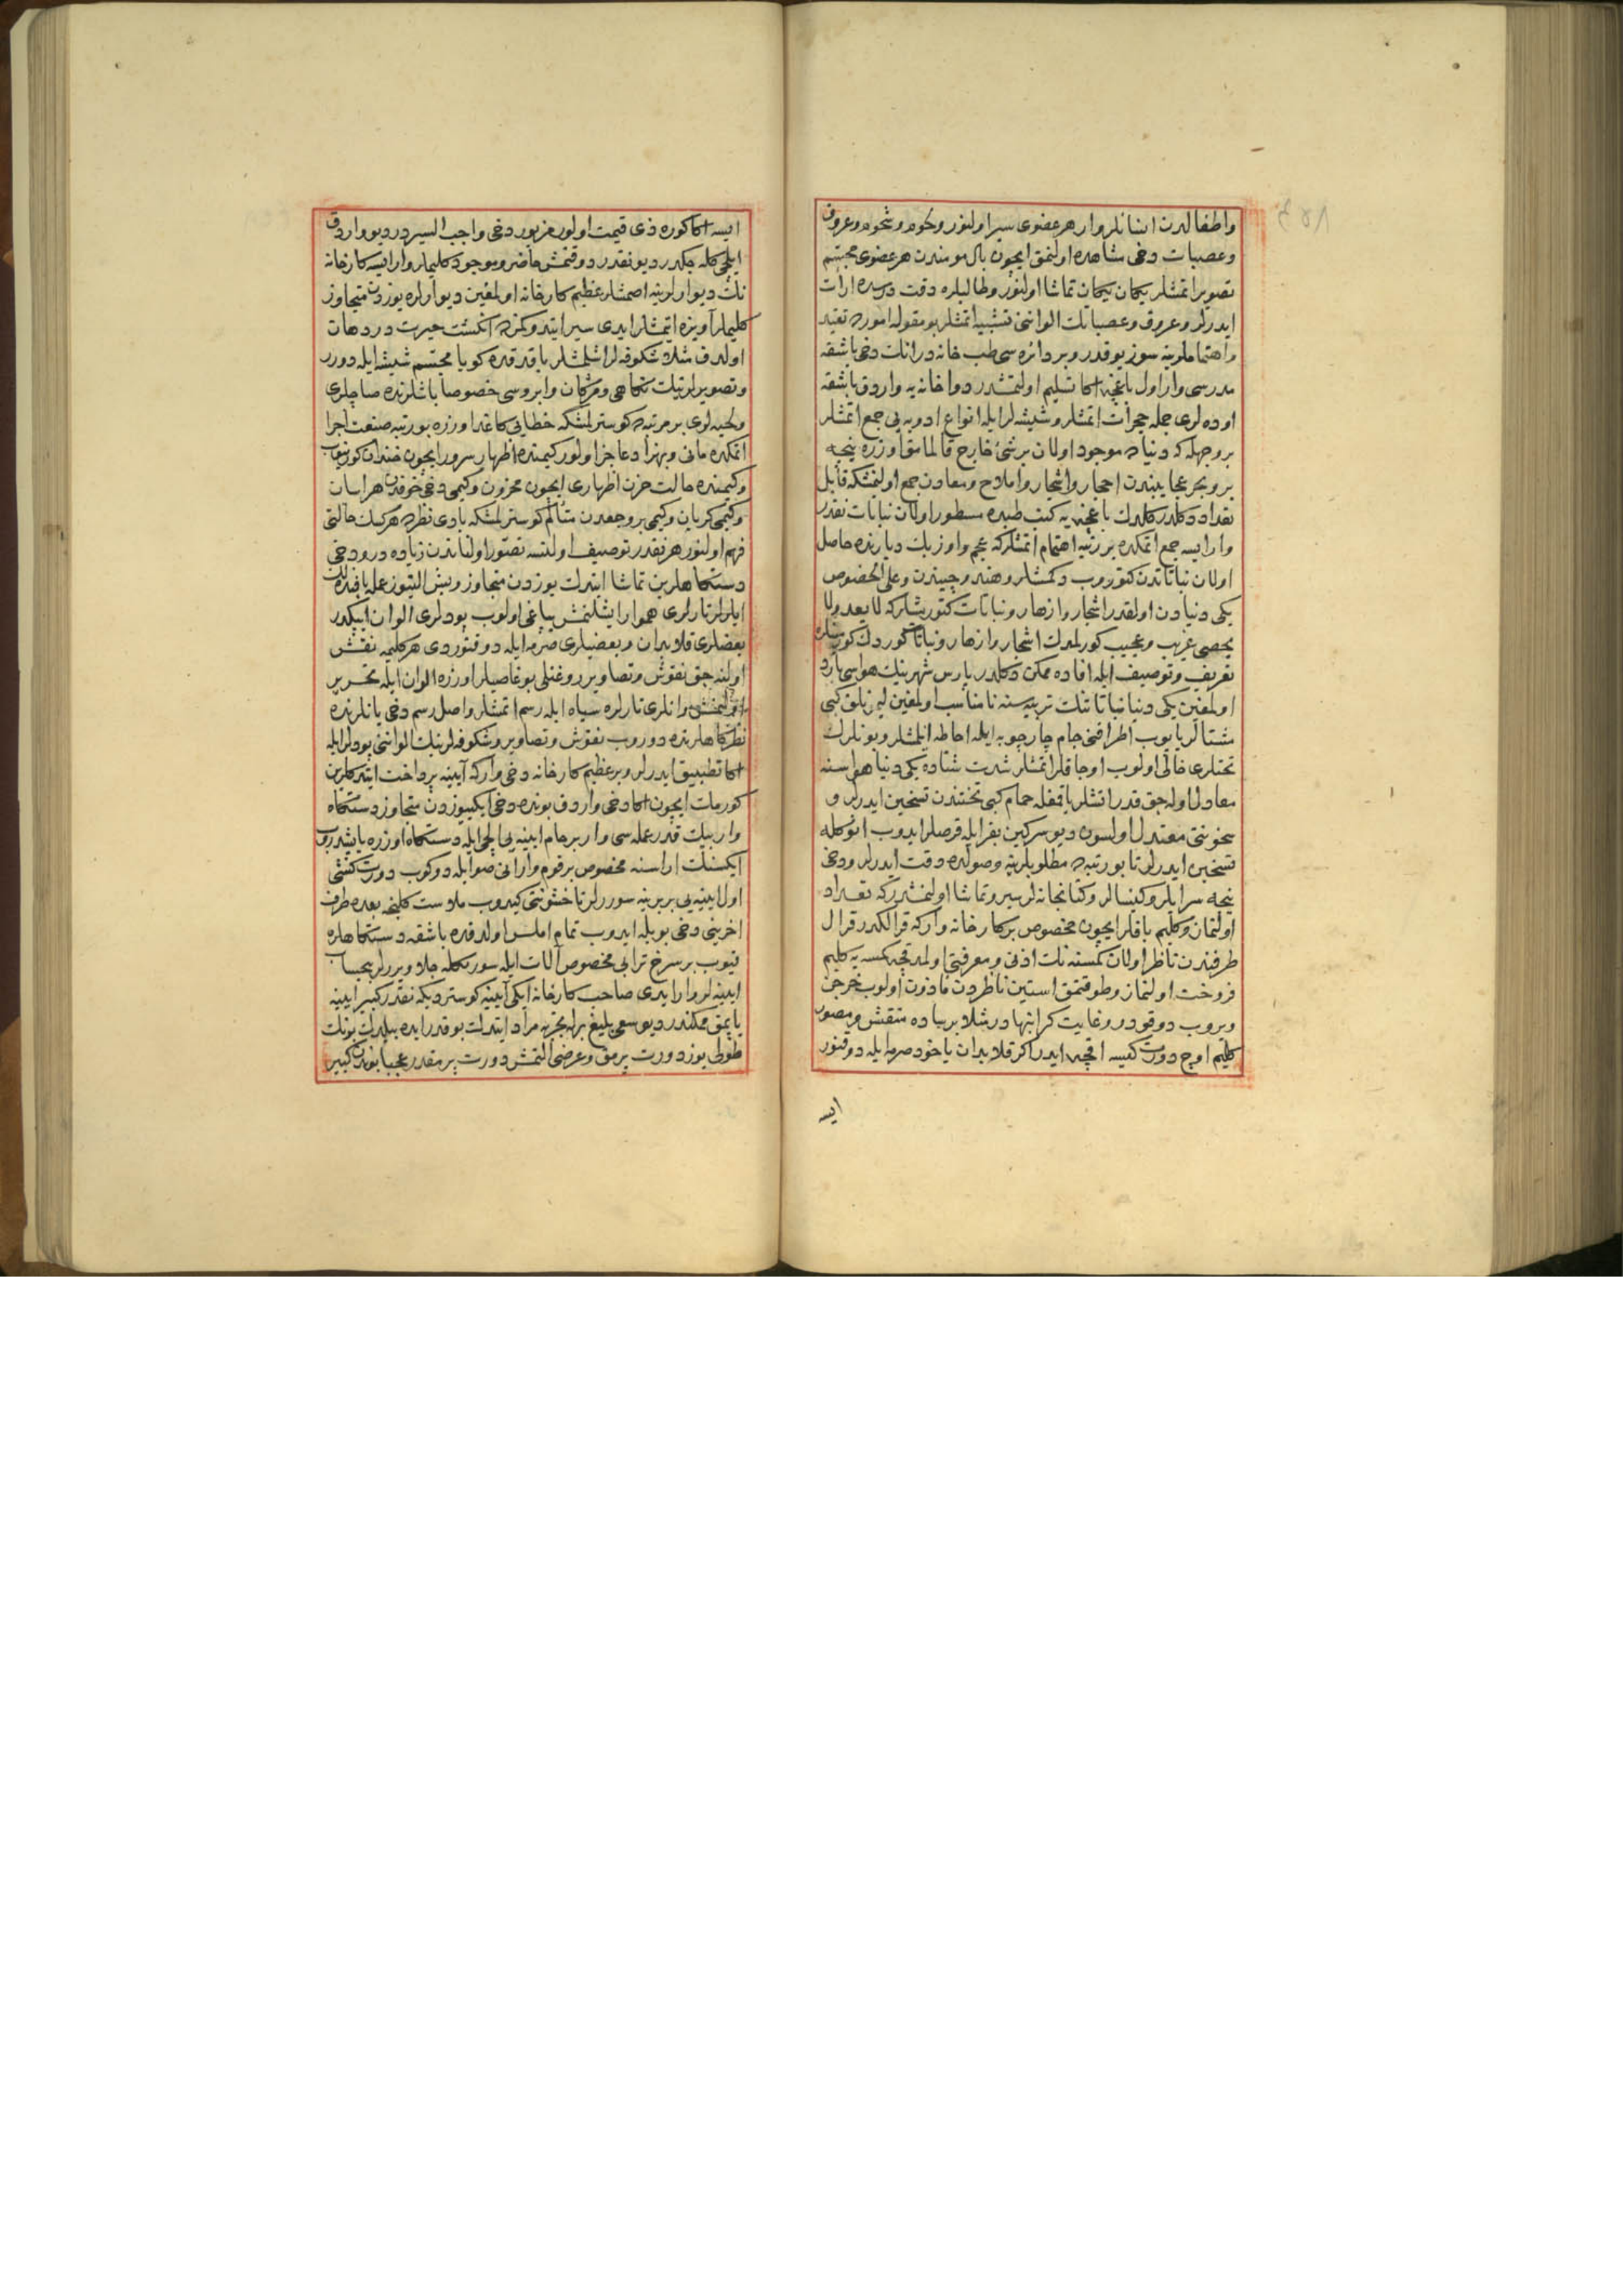 واطفالدن انسانلر وار هر عضوی سیر اولنور ولحوم وشحوم وعروق
وعصبات دخی مشاهده اولنمق ایچون بال مومندن هر عضوی مجسّم
تصویر اتمشلر یکان یکان تماشا اولنور وطالبلره دقت درسده ارات
ایدرلر وعروق وعصباتك الواننی تشبیه اتمشلر بو مقوله اموره تقید
واهتماملرینه سوز یوقدر وبر دائره سی طب خانه در انك دخی باشقه
مدرسی وار اول باغچه اکا تسلیم اولنمشدر دواخانه یه واردق باشقه
اوده لری جمله حجرات اتمشلر وشیشه لر ایله انواع ادویه یی جمع اتمشلر
بر وجهله که دنیاده موجود اولان بر شئ خارج قالمامق اوزره نیجه
بر وبحر عجایبندن احجار واشجار واملاح ومعادن جمع اولنمشکه قابل
تعداد دکلدر کلدك باغچه یه کتب طبده مسطور اولان نباتات نقدر
وار ایسه جمع اتمکده بر رتبه اهتمام اتمشلرکه عجم واوزبك دیارنده حاصل
اولان نباتاتدن کتوروب دکمشلر وهند وچیندن وعلی الخصوص
یکی دنیادن اولقدر اشجار وازهار ونباتات کتورمشلرکه لا یعد ولا
یحصی غریب وعجیب کورلمدك اشجار وازهار ونباتات کوردك کورینلره
تعریف وتوصیف ایله افاده ممکن دکلدر پارس شهرینك هواسی بارد
اولمغین یکی دنیا نباتاتنك تربیه سنه نامناسب اولمغین لیمونلق کبی
مشتالر یاپوب اطرافنی جام چارچوبه ایله احاطه ایلمشلر وبونلرك
تحتلری خالی اولوب اوجاقلر اتمشلر شدت شتاده یکی دنیا هواسنه
معادل اوله جق قدر اتشلر یاقمغله حمام کبی تحتندن تسخین ایدرلر و
سخونتی معتدل اولسون دیو سرکین بقر ایله قرصلر ایدوب انوکله
تسخین ایدرلر تا بو رتبه ده مطلوبلرینه وصولده دقت ایدرلر ودخی
نیجه سرایلر وکنیسالر وکتابخانه لر سیر وتماشا اولنمشدرکه تعداد
اولنماز وکلیم بافلر ایچون مخصوص بر کارخانه وارکه قرالکدر قرال
طرفندن ناظر اولان کمسنه نك اذنی ومعرفتی اولمدقجه کمسه یه کلیم
فروخت اولنماز وطوقتمق استین ناظردن ماذون اولوب خرجن
ویروب دوقودر وغایت کرانبهادر مثلا بر ساده منقش ومصور
کلیم اوچ دورت کیسه اقچه ایدر اکر قلابدان یاخود صرمه ایله دوقنور
ایسه
ایسه اکا کوره ذی قیمت اولور مزبور دخی واجب السیردر دیو واردق
ایلچی کله جکدر دیو نقدر دوقنمش حاضر وموجود کلیملر وار ایسه کارخانه
نك دیوارلرینه اصمشلر عظیم کارخانه اولمغین دیوارلره یوزدن متجاوز
کلیملر آویزه ایتمشلر ایدی سیر ایتدوکمزده انکشت حیرت در دهان
اولدق مثلا شکوفه لر اشلمشلر باقدقده کویا مجسّم شیشه ایله دورر
وتصویرلرینك نکاهی ومژکان وابروسی خصوصا باشلرنده صاچلری
ولحیه لری بر مرتبه ده کوسترلمشکه خطایی کاغد اوزره بو رتبه صنعت اجرا
اتمکده مانی وبهزاد عاجز اولور کیمنده اظهار سرور ایچون خندان کورینور
وکیمنده حالت حزن اظهاری ایچون محزون وکیمی دخی خوفدن هراسان
وکیمی کریان وکیمی بر وجعدن متألم کوسترلمشکه بادی نظرده هر کسك حالتی
فهم اولنور هر نقدر توصیف اولنسه تصوّر اولناندن زیاده درو دخی
دستکاهلرین تماشا ایتدك یوزدن متجاوز وبش التیوز عمله بافنده لك
ایلرلر تارلری هموار ایشلنمش یپاغی اولوب پودلری الوان ایپکدر
بعضلری قلابدان وبعضیلری صرمه ایله دوقنوردی هر کلیمه نقش
اولنه جق نقوش وتصاویر روغنلی بوغاصیلر اوزره الوان ایله تحریر
اولنمش وانلری تارلره سیاه ایله رسم اتمشلر واصل رسم دخی یانلرنده
نظرکاهلرنده دوروب نقوش وتصاویر وشکوفه لرینك الواننی پودلر ایله
اکا تطبیق ایدرلر وبر عظیم کارخانه دخی وارکه آیینه پرداخت ایتدکلرین
کورمك ایچون اکا دخی واردق بونده دخی ایکییوزدن متجاوز دستکاه
وار بیك قدر عمله سی وار بر خام ایینه یی الچی ایله دستکاه اوزره یاپشدروب
ایکسنك اراسنه مخصوص بر قوم وار انی صو ایله دوکوب دورت کشی
اول ایینه یی بر برینه سوررلر تا خشونتی کیدوب ملاست کلینجه بعده طرف
اخرینی دخی بویله ایدوب تمام املس اولدقده باشقه دستکاهلره
قیوب بر سرخ ترابی مخصوص آلات ایله سورمکله جلا ویررلر بیحساب
ایینه لر وار ایدی صاحب کارخانه ایکی آیینه کوستردیکه نقدر کبیر ایینه
یاپمق ممکندر دیو سعی بلیغ برله تجربه مراد ایتدك بو قدر ایده بیلدك بونك
طولی یوز دورت پرمق وعرضی التمش دورت پرمقدر عجبا بوندن کبیر